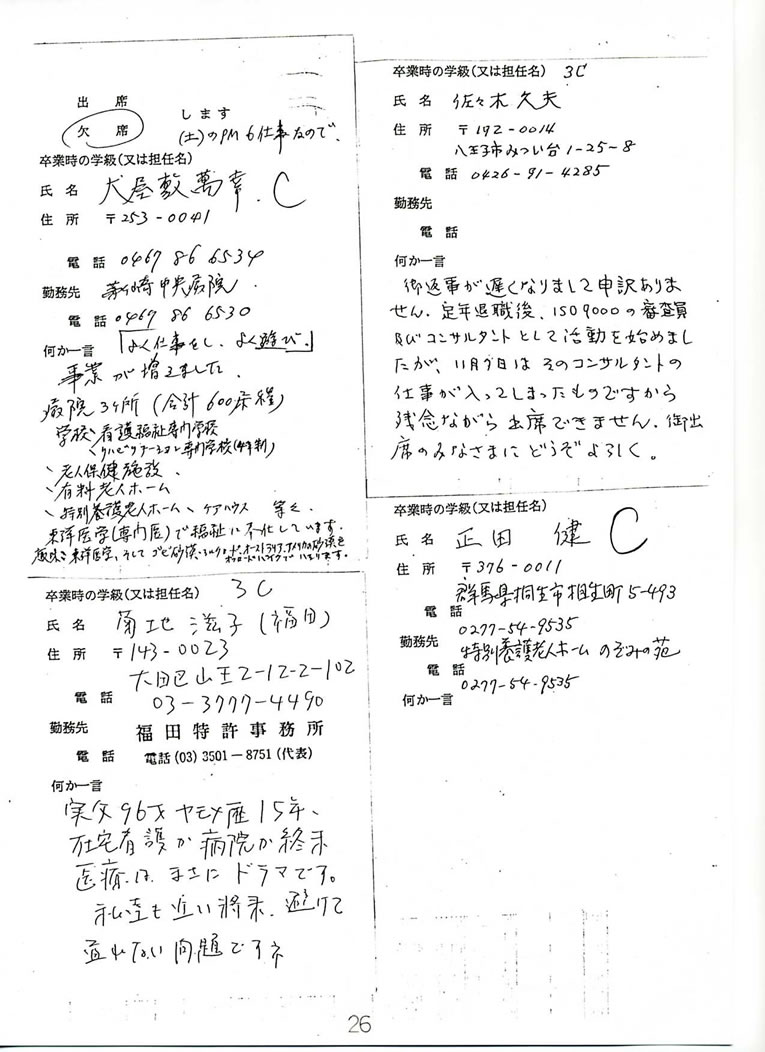 出　席
欠　席
します
(土)のPMも仕事なので、
卒業時の学級(又は担任名)
氏　名　犬屋敷萬幸. C
住　所　〒253-0041
電　話　0467 86 6534
勤務先　茅ヶ崎中央病院
電　話　0467 86 6530
何か一言　「よく仕事をし、よく遊び。」
事業が増えました。
病院3ヶ所 (合計600床経)
学校、看護福祉専門学校
リハビリテーション専門学校(4年制)
、老人保健施設、
、有料老人ホーム
、特別養護老人ホーム、ケアハウス 等々
東洋医学(専門医)で福祉に　しています。
趣味：東洋医学、そして ゴビ砂漠、シルクロード、オーストラリア、アメリカの砂漠を
オフロードバイクで　ます。
卒業時の学級(又は担任名)　3C
氏　名　菊地 滋子 (福田)
住　所　〒143-0023
大田区山王2-12-2-102
電　話　03-3777-4490
勤務先　福田特許事務所
電　話　電話 (03) 3501－8751 (代表)
何か一言
実父96才ヤモメ歴15年、
在宅看護か病院か終末
医療は まさに ドラマです。
私達も近い将来、避けて
通れない問題ですネ
卒業時の学級(又は担任名)　3C
氏　名　佐々木久夫
住　所　〒192-0014
八王子市みつい台1-25-8
電　話　0426-91-4285
勤務先
電　話
何か一言
御返事が遅くなりまして申訳ありま
せん. 定年退職後、ISO9000の審査員
及びコンサルタントとして活動を始めまし
たが、11月7日は そのコンサルタントの
仕事が入ってしまったものですから
残念ながら出席できません. 御出
席のみなさまに どうぞよろしく。
卒業時の学級(又は担任名)
氏　名　正田　健　C
住　所　〒376-0011
群馬県桐生市相生町5-493
電　話
0277-54-9535
勤務先　特別養護老人ホーム のぞみの苑
電　話
0277-54-9535
何か一言
26